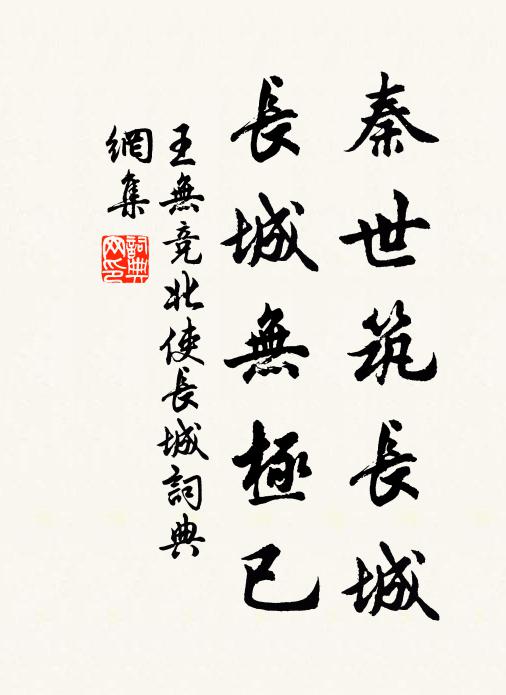 秦世筑長城
長城無極已
王無竞北使長城詞典
網集
詞典网印